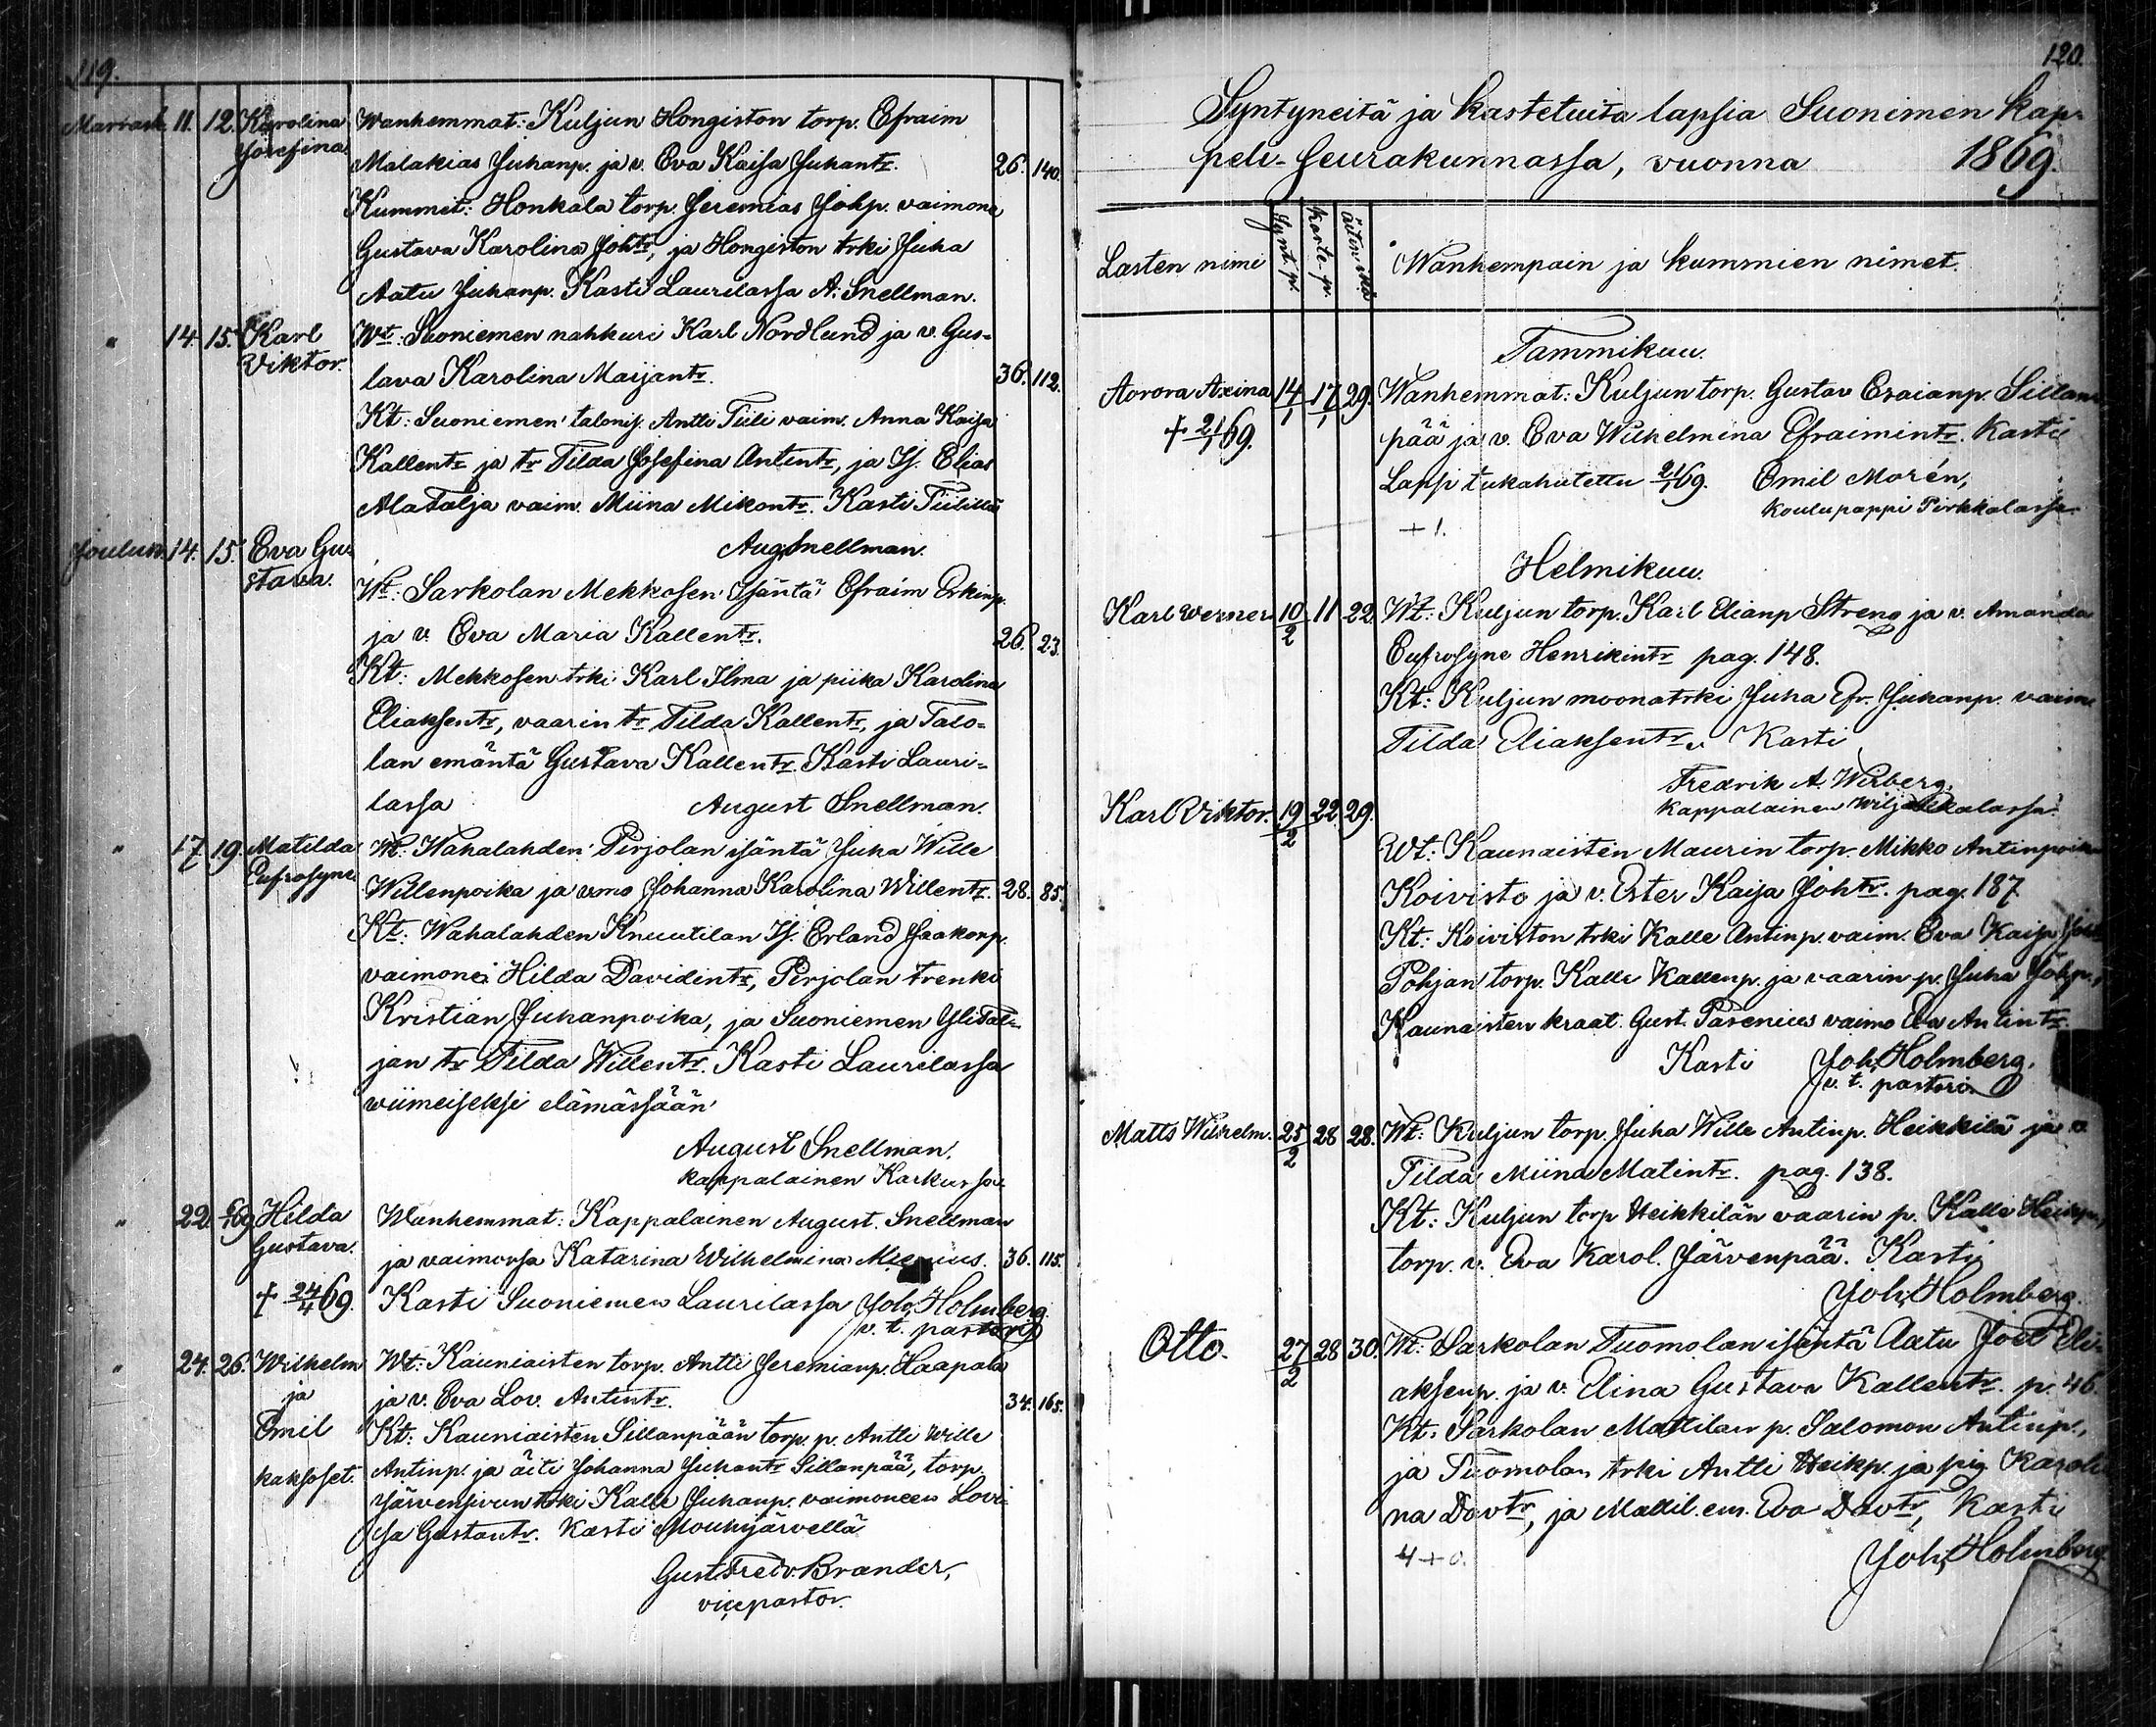 119.
Marrask. 11. 12. Karolina Wanhemmat: Kuljun Hongiston torp. Efraim
Josefina. Malakias Juhanp. ja v. Eva Kaisa Juhantr. 26. 140.
Kummit: Honkala torp. Jeremias Johp. vaimone
Gustava Karolina Johtr, ja Hongiston trki Juha
Aatu Juhanp. Kasti Laurilassa A. Snellman.
" 14. 15. Karl Wt: Suoniemen nahkuri Karl Nordlund ja v. Gus-
Viktor. tava Karolina Maijantr. 36. 112.
Kt: Suoniemen talonij. Antti Tiili vaim. Anna Kaisa
Kallentr ja tr Tilda Josefina Antintr, ja Ij. Elias
AlaTalja vaim. Miina Mikontr. Kasti Tiilillä
Aug. Snellman.
Jouluk. 14. 15. Eva Gus
stava. Wt: Sarkolan Mekkosen Isäntä Efraim Erkinp.
ja v. Eva Maria Kallentr. 26. 23.
Kt: Mekkosen trki Karl Ilma ja piika Karolina
Eliaksentr, vaarin tr Tilda Kallentr, ja Talo-
lan emäntä Gustava Kallentr. Kasti Lauri-
lassa August Snellman.
" 17. 19. Matilda Wt: Wahalahden Pirjolan isäntä Juha Wille
Eufrosyne. Willenpoika ja vmo Johanna Karolina Willentr. 28. 85.
Kt: Wahalahden Knuutilan Ij. Erland Jaakonp.
vaimonei Hilda Davidintr, Pirjolan trenki
Kristian Juhanpoika, ja Suoniemen YliTal-
jan tr Tilda Willentr. Kasti Laurilassa
wiimeiseksi elämässään
August Snellman,
kappalainen Karkussa
" 22. 6/1 69 Hilda Wanhemmat: Kappalainen August. Snellman
Gustava. ja vaimonsa Katarina Wilhelmina 36. 115.
+ 24/4 69. Kasti Suoniemen Laurilassa Joh. Holmberg.
v. t. pastori
" 24. 26. Wilhelm Wt: Kauniaisten torp. Antti Jeremianp. Haapala
ja ja v. Eva Lov. Antintr. 34. 165.
Emil Kt: Kauniaisten Sillanpään torp. p. Antti Wille
kaksoset. Antinp. ja äiti Johanna Juhantr Sillanpää, torp.
Järvensivun trki Kalle Juhanp. vaimoneen Lovi-
sa Gustantr. Kasti Mouhijärvellä
Gust. Fredr. Brander,
vicepastor.
120.
Syntyneitä ja kastetuita lapsia Suonimen kap-
peli-seurakunnassa, vuonna 1869.
Lasten nimi Synt. p. kaste-p. äitin ikä Wanhempain ja kummien nimet.
Tammikuu.
Aorora Axina 14/1 17/1 29. Wanhemmat: Kuljun torp. Gustav Esaianp. Sillan
+ 21/1 69. pää ja v. Eva Wilhelmina Efraimintr. Kasti
Lapsi tukahutettu 21/1 69. Emil Morén,
koulupappi Pirkkalassa.
+ 1.
Helmikuu.
Karl Werner 10/2 11 22. Wt: Kuljun torp. Karl Elianp Streng ja v. Amanda
Eufrosyne Henrikintr pag. 148.
Kt: Kuljun moonatrki Juha Efr. Juhanp. vaim
Tilda Eliaksentr. Kasti
Fredrik A. Wirberg.
kappalainen Wiljakkalassa.
Karl Viktor. 19/2 22. 29.
Wt: Kaunaisten Maurin torp. Mikko Antinpoika
Koivisto ja v. Ester Kaija Johtr. pag. 187
Kt: Koiviston trki Kalle Antinp. vaim. Eva Kaija
Pohjan torp. Kalle Kallenp. ja vaarin p. Juha Johp.,
Kaunaisten kraat. Gust. Pasenius vaimo Eva Antintr.
Kasti Joh. Holmberg.
v. t. pastori
Matts Wilhelm. 25/2 28 28. Wt: Kuljun torp. Juha Wille Antinp. Heikkilä ja v
Tilda Miina Matintr. pag. 138.
Kt: Kuljun torp Heikkilän vaarin p. Kalle Heikinp.,
torp. v. Eva Karol. Järvenpää. Kasti
Joh. Holmberg.
Otto. 27/2 28 30. Wt: Sarkolan Tuomolan isäntä Aatu Joel Eli-
aksenp. ja v. Elina Gustava Kallentr. p. 46.
Kt: Sarkolan Mattilan p. Salomon Antinp.,
ja Tuomolan trki Antti Heikp. ja pig Karoli
na Davtr, ja Mattil. em. Eva Davtr, Kasti
4 + 0. Joh. Holmberg